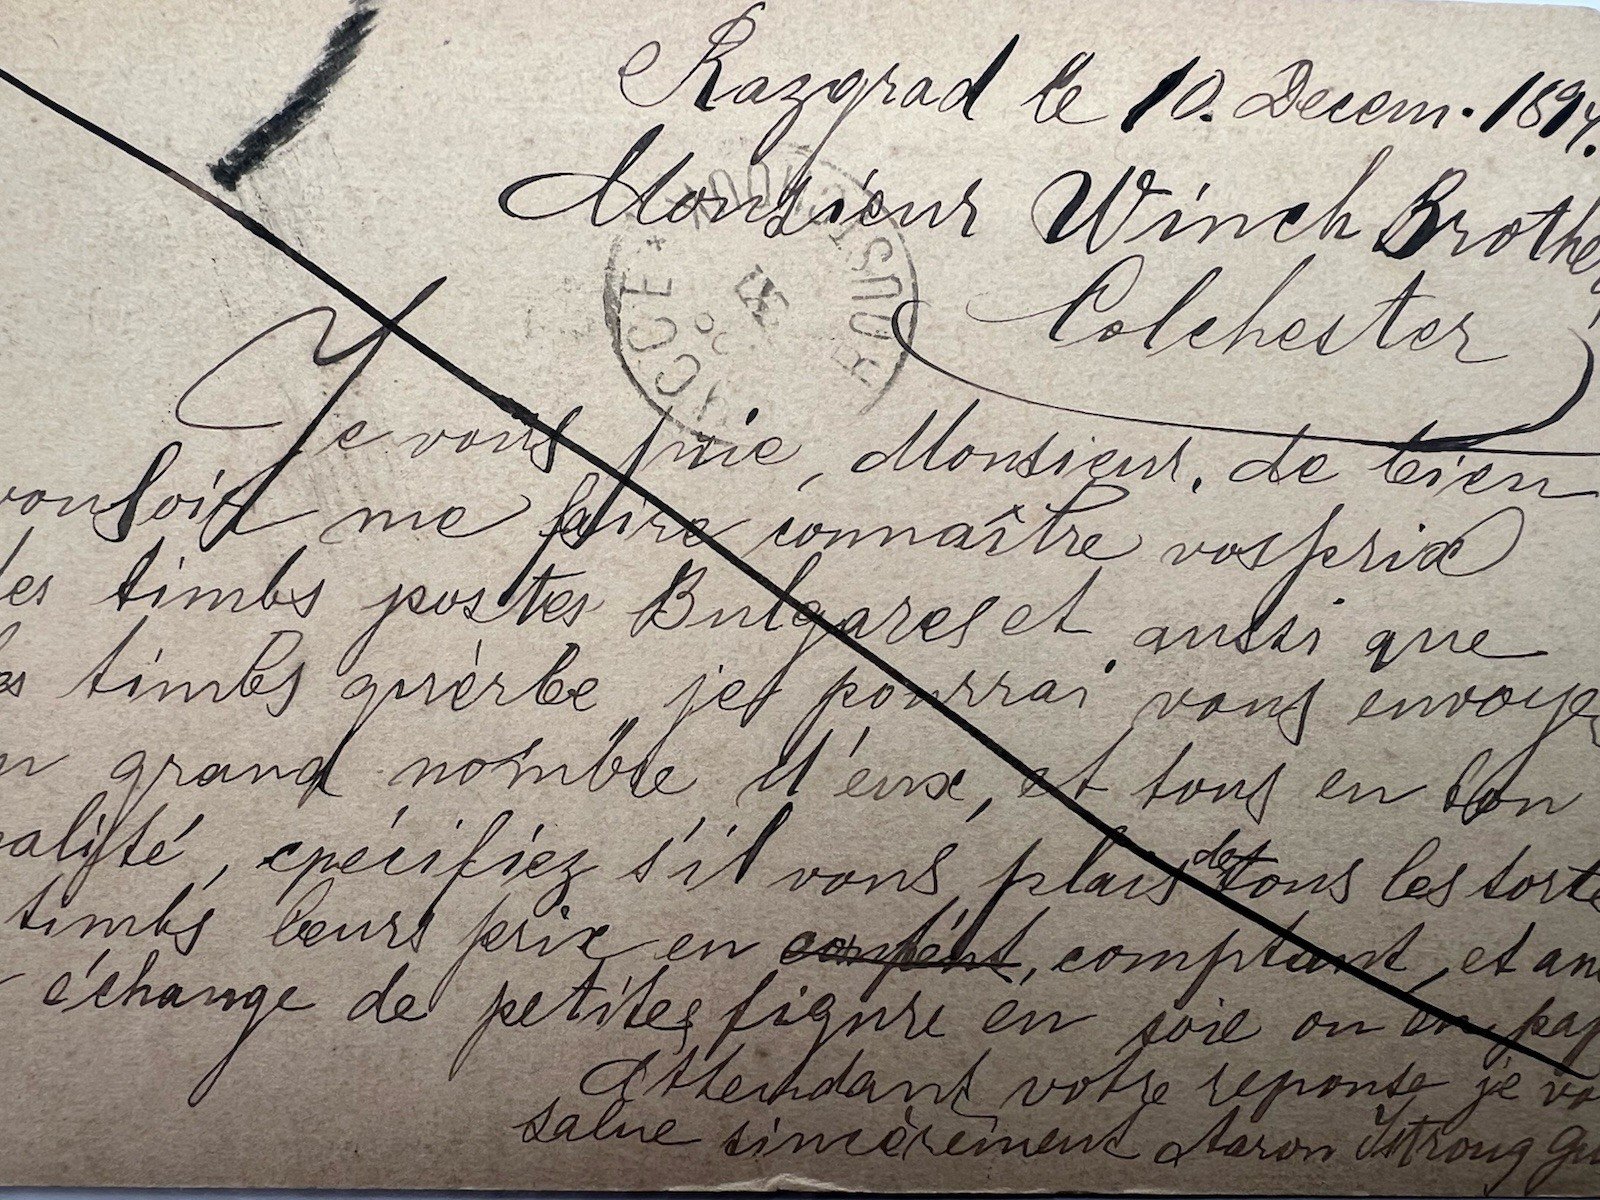 Razgrad le 10. Decem. 1894.
Monsieur Winch Brother
Colchester
ROUSTCHOUK * RCCE *
Je vous prie, Monsieur, de bien
vouloir me faire connaître vos prix
des timbs postes Bulgares et aussi que
les timbs je pourrai vous envoyer
un grand nombre d'eux, et tous en bon
qualité, epécifiez s'il vous plais de tous les sorte
timbs leurs prix en comptant, et an
échange de petites figure en soie ou en pap
Attendant votre reponse je vo
salue sincèrement Aaron